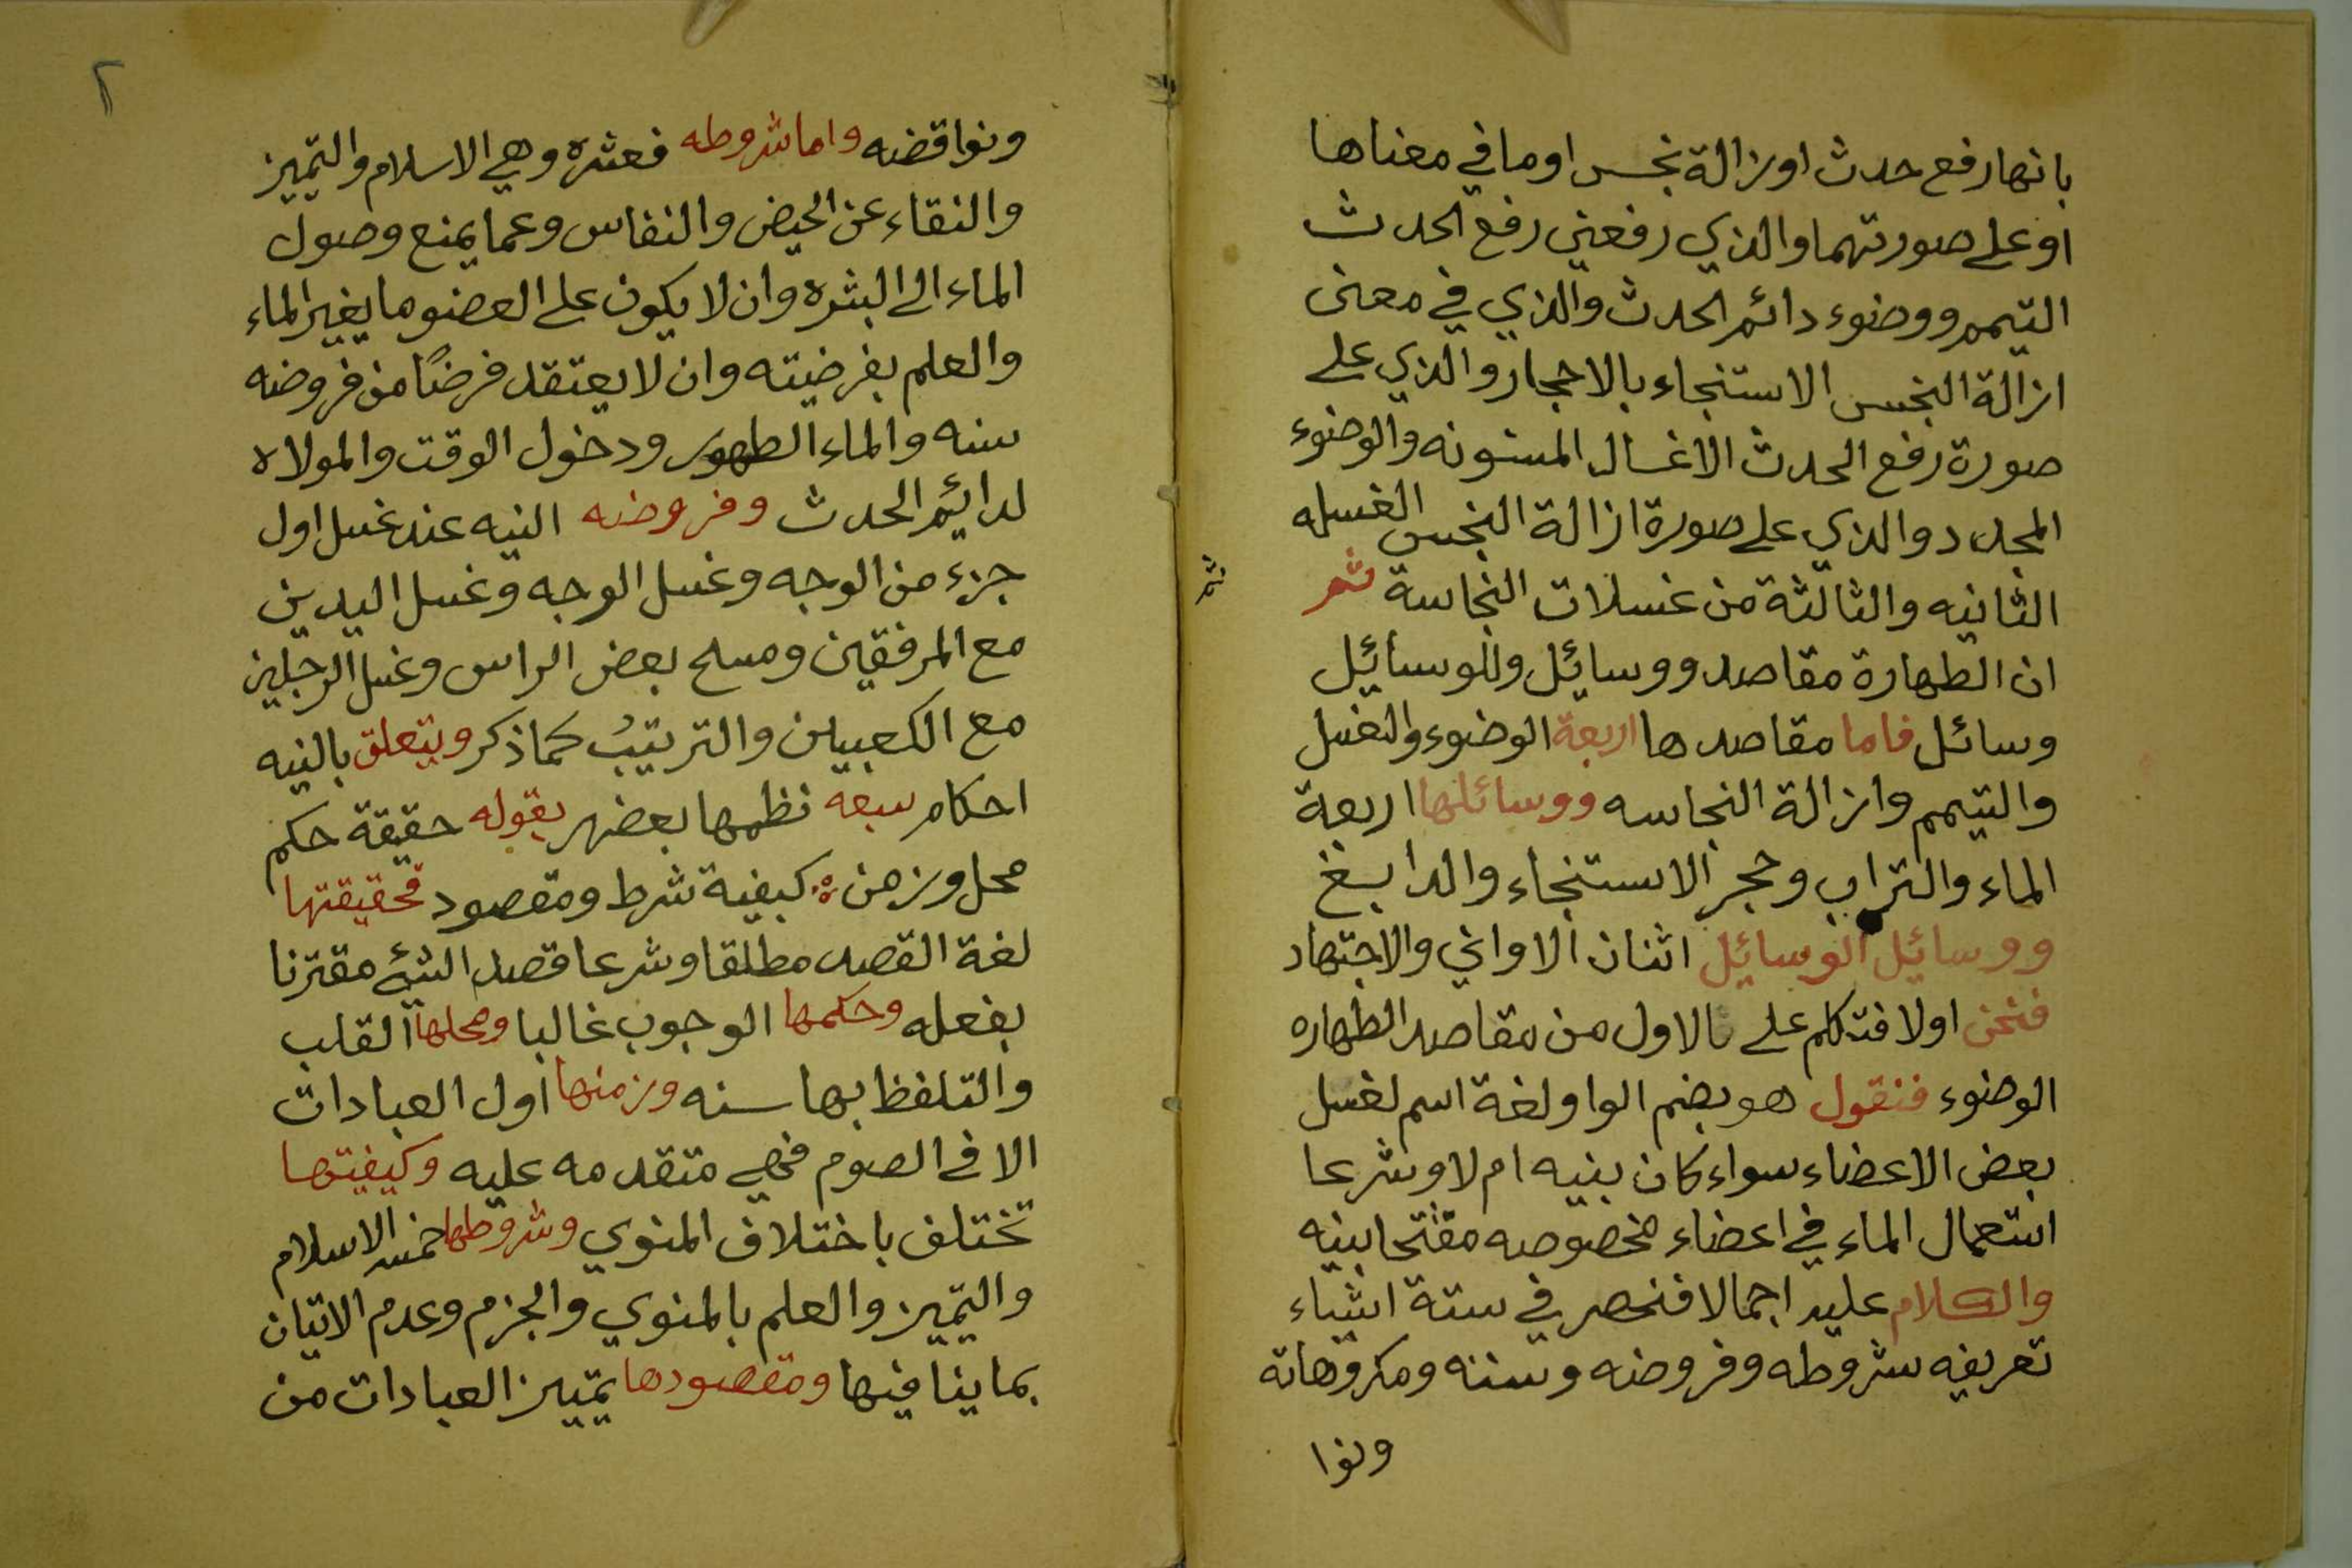 بانها رفع حدث او ازالة نجس او ما في معناها
او على صورتهما والذي رفعني رفع الحدث
التيمم ووضوء دائم الحدث والذي في معنى
ازالة النجس الاستنجاء بالاحجار والذي على
صورة رفع الحدث الاغسال المسنونه والوضوء
المجدد والذي على صورة ازالة النجس الغسله
الثانيه والثالثة من غسلات النجاسة ثم
ان الطهارة مقاصد ووسائل وللوسائل
وسائل فاما مقاصدها اربعة الوضوء والغسل
والتيمم وازالة النجاسه ووسائلها اربعة
الماء والتراب وحجر الاستنجاء والدابغ
ووسائل الوسائل اثنان الاواني والاجتهاد
فنحن اولا فتكلم على الاول من مقاصد الطهاره
الوضوء فنقول هو بضم الواو لغة اسم لغسل
بعض الاعضاء سواء كان بنيه ام لا وشرعا
استعمال الماء في اعضاء مخصوصه مفتتحا بنيه
والكلام عليه اجمالا فنحصر في ستة اشياء
تعريفه شروطه وفروضه وسننه ومكروهاته
ونوا
٢
ونواقضه واما شروطه فعشره وهي الاسلام والتمييز
والنقاء عن الحيض والنفاس وعما يمنع وصول
الماء الى البشره وان لا يكون على العضو ما يغير الماء
والعلم بفرضيته وان لا يعتقد فرضًا من فروضه
سنه والماء الطهور ودخول الوقت والمولاه
لدايئم الحدث وفروضه النيه عند غسل اول
جزء من الوجه وغسل الوجه وغسل اليدين
مع المرفقين ومسح بعض الراس وغسل الرجلين
مع الكعبين والترتيبُ كما ذكر ويتعلق بالنيه
احكام سبعه نظمها بعضهم بقوله حقيقة حكم
محل وزمن ؞ كيفية شرط ومقصود فحقيقتها
لغة القصد مطلقا وشرعا قصد الشئ مقترنا
بفعله وحكمها الوجوب غالبا ومحلها القلب
والتلفظ بها سنه وزمنها اول العبادات
الا في الصوم فهي متقدمه عليه وكيفيتها
تختلف باختلاف المنوي وشروطها خمسه الاسلام
والتمييز والعلم بالمنوي والجزم وعدم الاتيان
بما ينافيها ومقصودها تمييز العبادات من